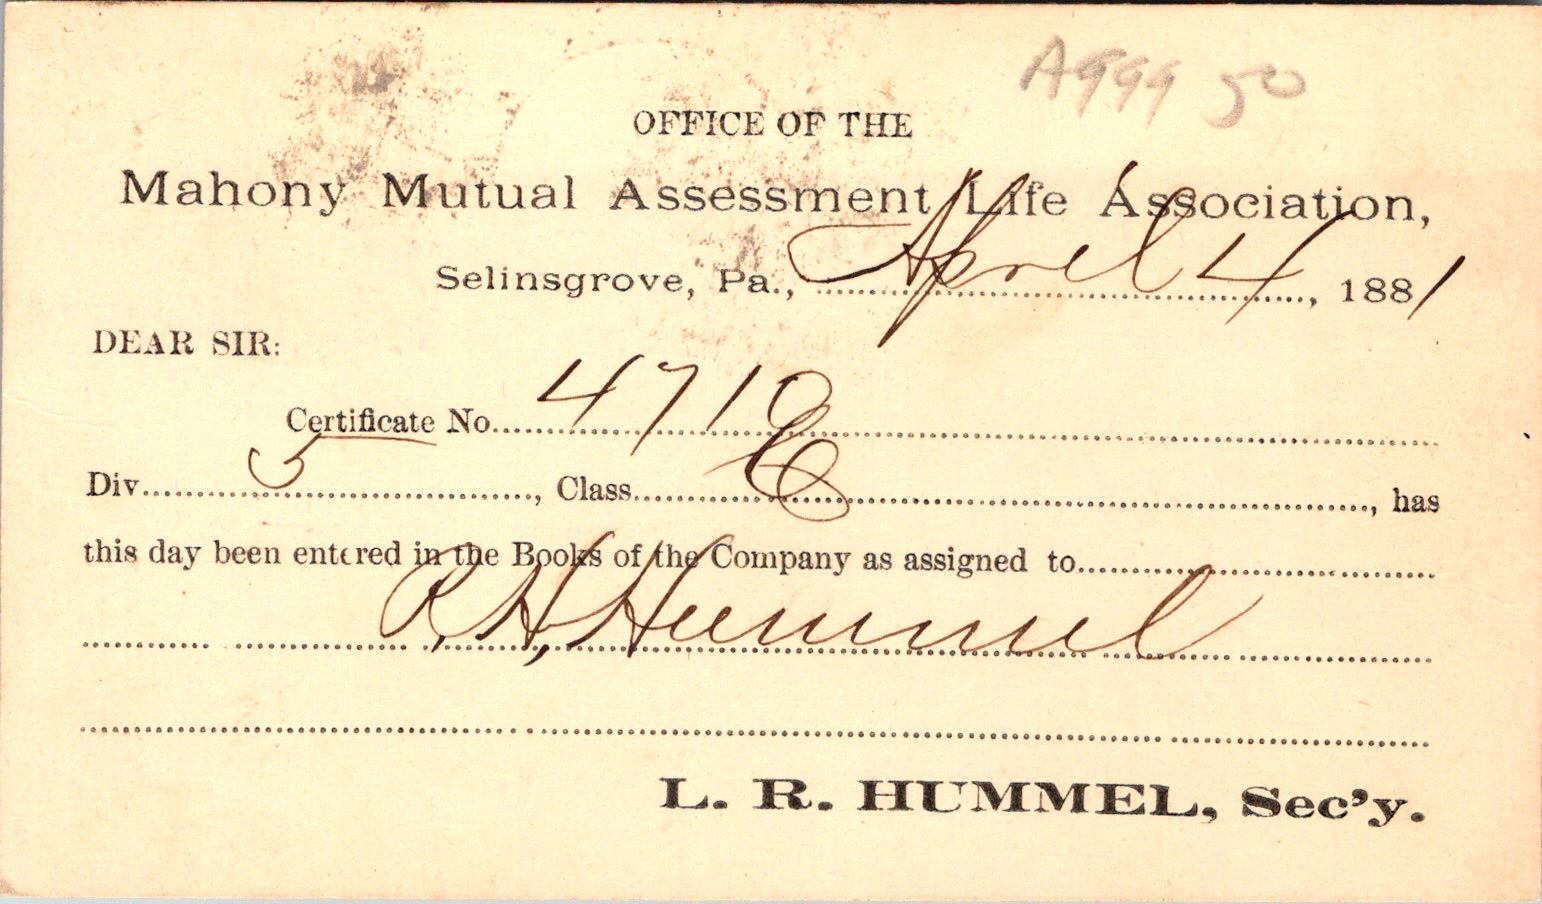 A999 50
OFFICE OF THE
Mahony Mutual Assessment Life Association,
Selinsgrove, Pa., April 4, 1881
DEAR SIR:
Certificate No. 4710
Div. 5, Class E, has
this day been entered in the Books of the Company as assigned to
R. H. Hummel
L. R. HUMMEL, Sec'y.